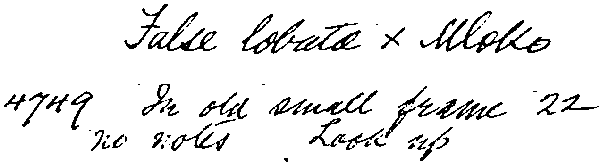 False lobata x Mloko
4749 In old small frame 22
no notes Look up